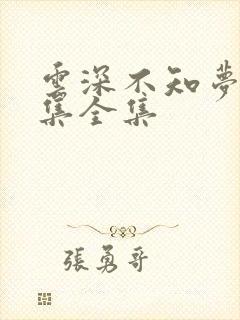 雲深不知夢
集全集
張勇哥